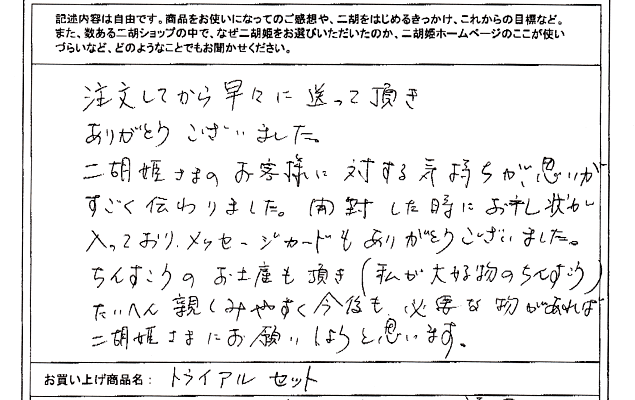 記述内容は自由です。商品をお使いになってのご感想や、二胡をはじめるきっかけ、これからの目標など。
また、数ある二胡ショップの中で、なぜ二胡姫をお選びいただいたのか、二胡姫ホームページのここが使い
づらいなど、どのようなことでもお聞かせください。
注文してから早々に送って頂き
ありがとうございました。
二胡姫さまのお客様に対する気持ちが、思いが
すごく伝わりました。開封した時にお礼状が
入っており、メッセージカードもありがとうございました。
ちんすこうのお土産も頂き(私が大好物のちんすこう)
たいへん親しみやすく今後も、必要な物があれば
二胡姫さまにお願いしようと思います。
お買い上げ商品名: トライアルセット